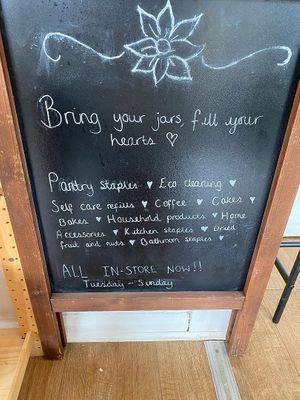 Bring your jars, fill your
hearts ♡
Pantry staples ♥ Eco cleaning ♥
Self care refills ♥ Coffee ♥ Cakes ♥
Bakes ♥ Household products ♥ Home
Accessories ♥ Kitchen staples ♥ Dried
fruit and nuts ♥ Bathroom staples ♥
ALL IN-STORE NOW!!
Tuesday - Sunday